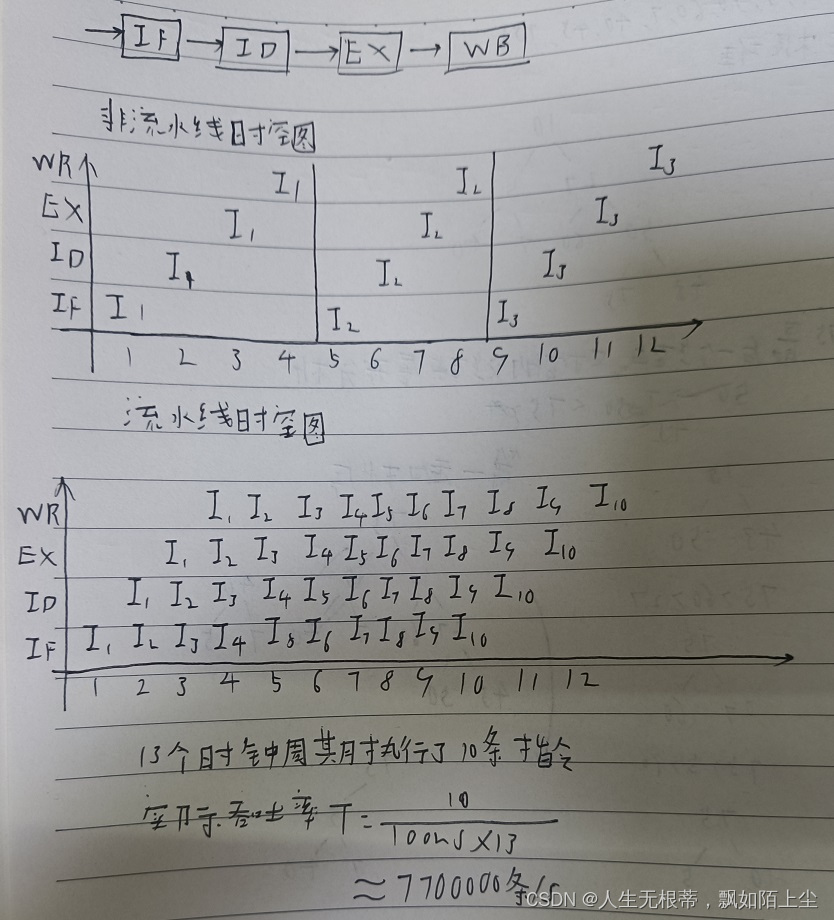 IF ID EX WB
非流水线时空图
WR I1 I2 I3
EX I1 I2 I3
ID I1 I2 I3
IF I1 I2 I3
1 2 3 4 5 6 7 8 9 10 11 12
流水线时空图
WR I1 I2 I3 I4 I5 I6 I7 I8 I9 I10
EX I1 I2 I3 I4 I5 I6 I7 I8 I9 I10
ID I1 I2 I3 I4 I5 I6 I7 I8 I9 I10
IF I1 I2 I3 I4 I5 I6 I7 I8 I9 I10
1 2 3 4 5 6 7 8 9 10 11 12
13个时钟周期执行了10条指令
实际吞吐率 T=
10
100ns×13
≈7700000条/s
CSDN @人生无根蒂，飘如陌上尘